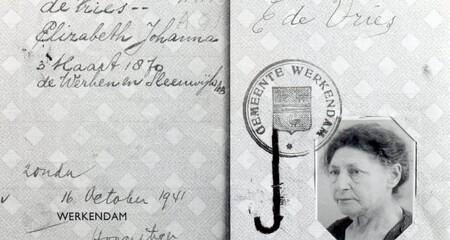 de Vries--
Elizabeth Johanna
3 Maart 1870
de Werken en Sleeuwijk NB
zonder
16 October 1941
WERKENDAM
E de Vries
GEMEENTE WERKENDAM
J